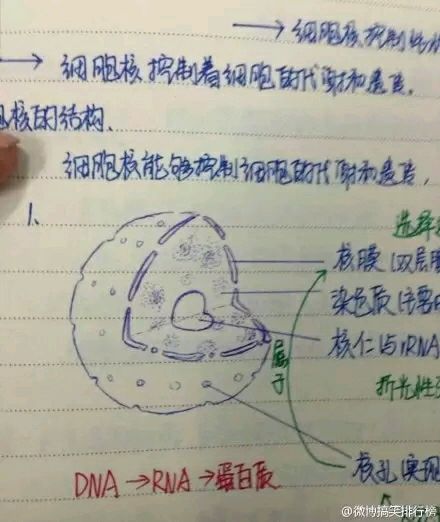 → 细胞核控制
→ 细胞核控制着细胞的代谢和遗传。
胞核的结构、
细胞核能够控制细胞的代谢和遗传,
1、
选择
核膜(双层膜
染色质(主要由
核仁(与rRNA
属于
折光性强
核孔(实现
DNA→RNA→蛋白质
@微博搞笑排行榜